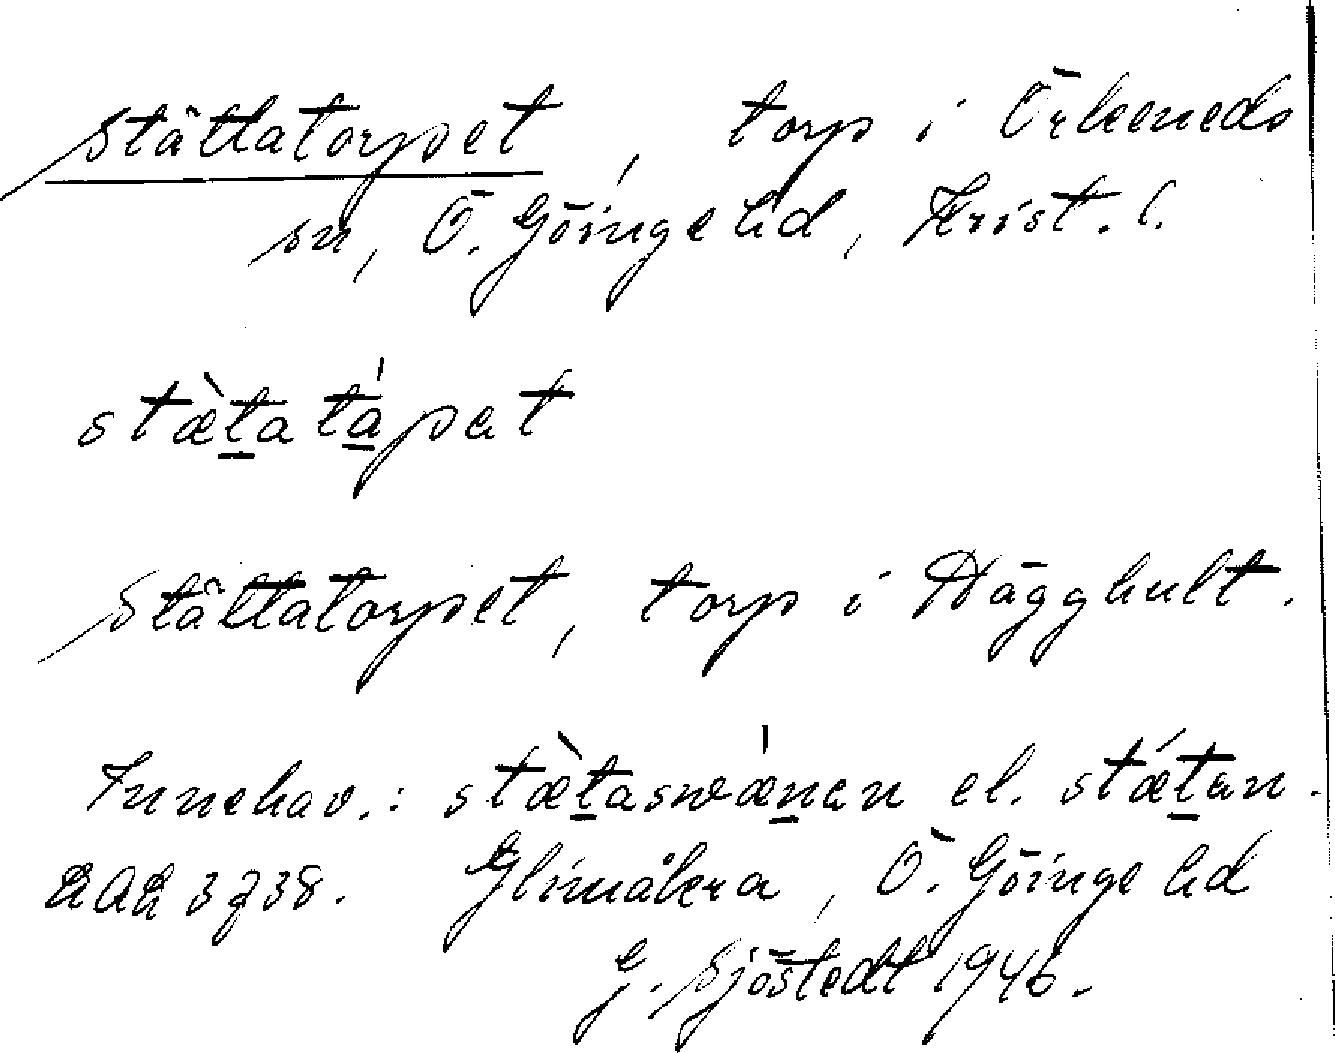 Ståttatorpet, torp i Örkeneds
sn, Ö. Göinge hd, Krist. l.
stæ̀t̲atа̲̍pet
Ståttatorpet, torp i Hägghult.
Innehav.: stæ̀t̲asvæ̍n̲en el. stǽt̲an.
LAL 3738. Glimåkra, Ö. Göinge hd
G. Sjöstedt 1946.